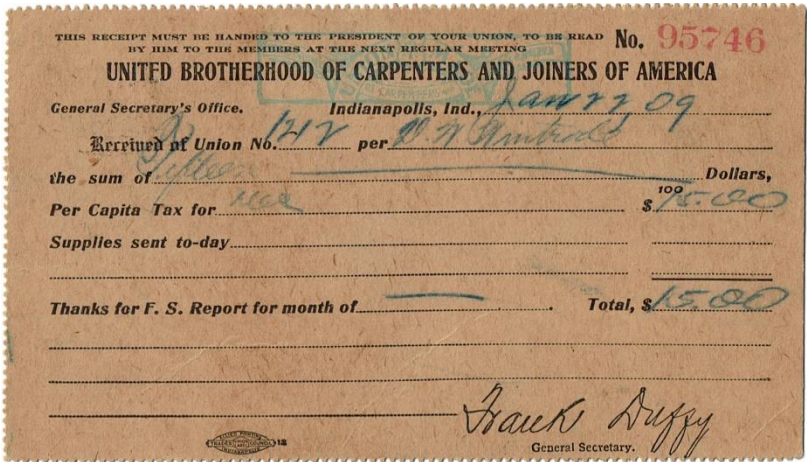 THIS RECEIPT MUST BE HANDED TO THE PRESIDENT OF YOUR UNION, TO BE READ
BY HIM TO THE MEMBERS AT THE NEXT REGULAR MEETING
No. 95746
UNITED BROTHERHOOD OF CARPENTERS AND JOINERS OF AMERICA
General Secretary's Office. Indianapolis, Ind., Jan 22, 09
Received of Union No. 142 per D. N.
the sum of Fifteen Dollars,
100
Per Capita Tax for $ 15.00
Supplies sent to-day
Thanks for F. S. Report for month of . Total, $ 15.00
Frank Duffy
General Secretary.